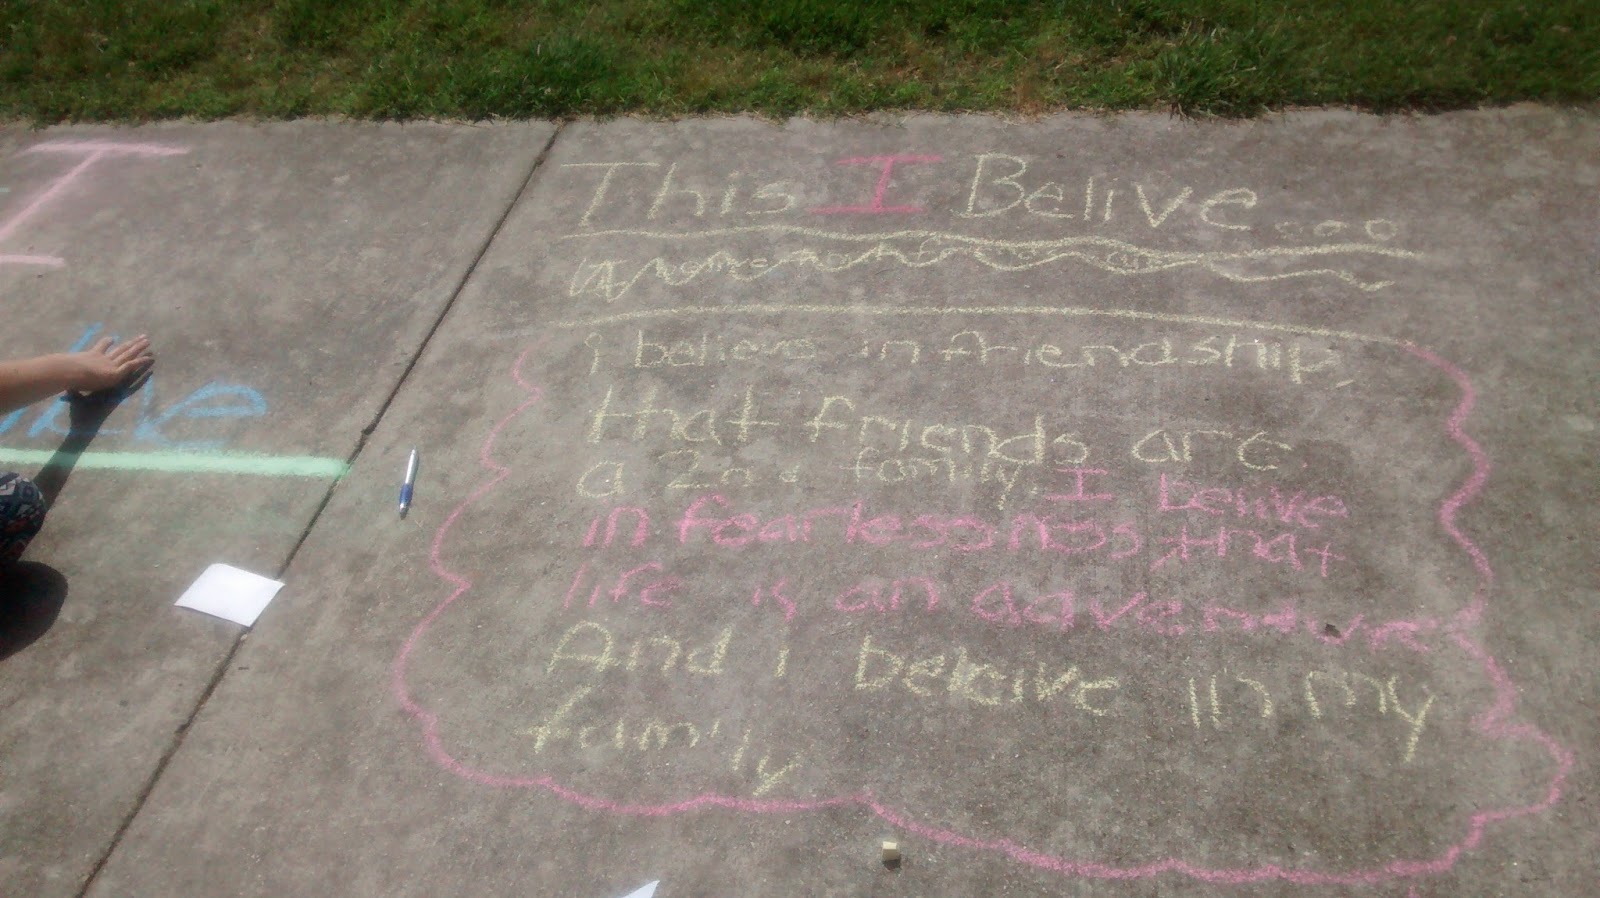 This I Belive...
i believe in friendship,
that friends are
a 2nd family. I belive
in fearlessness, that
life is an adventure
And i beleive in my
family
I